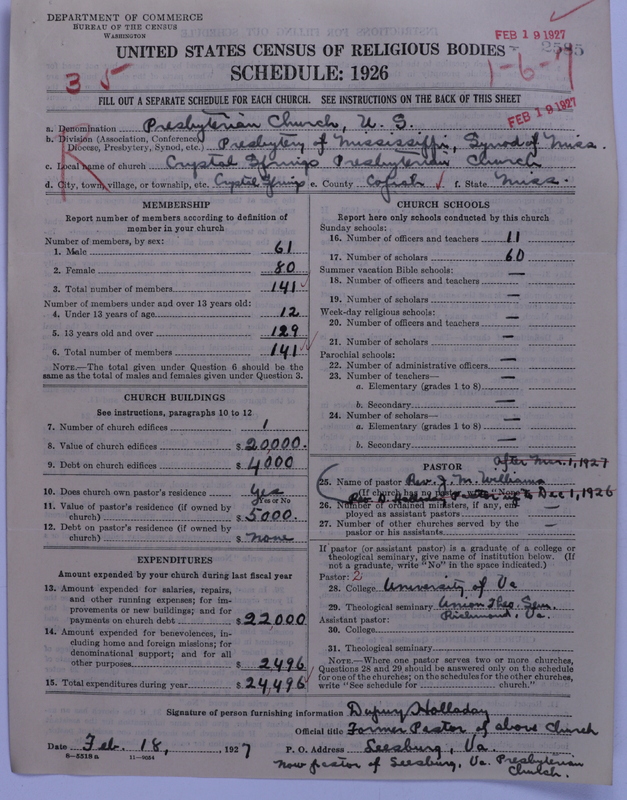 DEPARTMENT OF COMMERCE
BUREAU OF THE CENSUS
WASHINGTON
FEB 19 1927
2585
UNITED STATES CENSUS OF RELIGIOUS BODIES
1-6-7
3 5
SCHEDULE: 1926
FILL OUT A SEPARATE SCHEDULE FOR EACH CHURCH. SEE INSTRUCTIONS ON THE BACK OF THIS SHEET
FEB 19 1927
R
a. Denomination Presbyterian Church, U. S.
b. Division (Association, Conference, Diocese, Presbytery, Synod, etc.) Presbytery of Mississippi, Synod of Miss.
c. Local name of church Crystal Springs Presbyterian Church
d. City, town, village, or township, etc. Crystal Springs e. County Copiah f. State Miss.
MEMBERSHIP
Report number of members according to definition of
member in your church
Number of members, by sex:
1. Male 61
2. Female 80
3. Total number of members 141
Number of members under and over 13 years old:
4. Under 13 years of age 12
5. 13 years old and over 129
6. Total number of members 141
NOTE.—The total given under Question 6 should be
same as the total of males and females given under Question 3.
CHURCH BUILDINGS
See instructions, paragraphs 10 to 12
7. Number of church edifices 1
8. Value of church edifices $ 20,000.
9. Debt on church edifices $ 4,000
10. Does church own pastor's residence Yes
Yes or No
11. Value of pastor's residence (if owned by
church) $ 5000.
12. Debt on pastor's residence (if owned by
church) $ none
EXPENDITURES
Amount expended by your church during last fiscal year
13. Amount expended for salaries, repairs,
and other running expenses; for im-
provements or new buildings; and for
payments on church debt $ 22,000
14. Amount expended for benevolences, in-
cluding home and foreign missions; for
denominational support; and for all
other purposes $ 2496
15. Total expenditures during year $ 24,496
CHURCH SCHOOLS
Report here only schools conducted by this church
Sunday schools:
16. Number of officers and teachers 11
17. Number of scholars 60
Summer vacation Bible schools:
18. Number of officers and teachers —
19. Number of scholars —
Week-day religious schools:
20. Number of officers and teachers —
21. Number of scholars —
Parochial schools:
22. Number of administrative officers —
23. Number of teachers—
a. Elementary (grades 1 to 8) —
b. Secondary —
24. Number of scholars—
a. Elementary (grades 1 to 8) —
b. Secondary —
PASTOR
After Mar. 1, 1927
25. Name of pastor Rev. J. M. Williams
(If church has no pastor, write "None")
Rev. D. Holladay Pastor up to Dec 1, 1926
26. Number of ordained ministers, if any, em-
ployed as assistant pastors —
27. Number of other churches served by the
pastor or his assistants —
If pastor (or assistant pastor) is a graduate of a college or
theological seminary, give name of institution below. (If
not a graduate, write "No" in the space indicated.)
Pastor: 2
28. College University of Va
29. Theological seminary Union Theo. Sem.
Richmond, Va.
Assistant pastor:
30. College
31. Theological seminary
NOTE.—Where one pastor serves two or more churches,
Questions 28 and 29 should be answered only on the schedule
for one of the churches; on the schedules for the other churches,
write "See schedule for church."
Signature of person furnishing information Dupuy Holladay
Official title Former Pastor of above Church
Date Feb. 18, 1927 P. O. Address Leesburg, Va.
8—5518a 11—9054
Now pastor of Leesburg, Va. Presbyterian
Church.